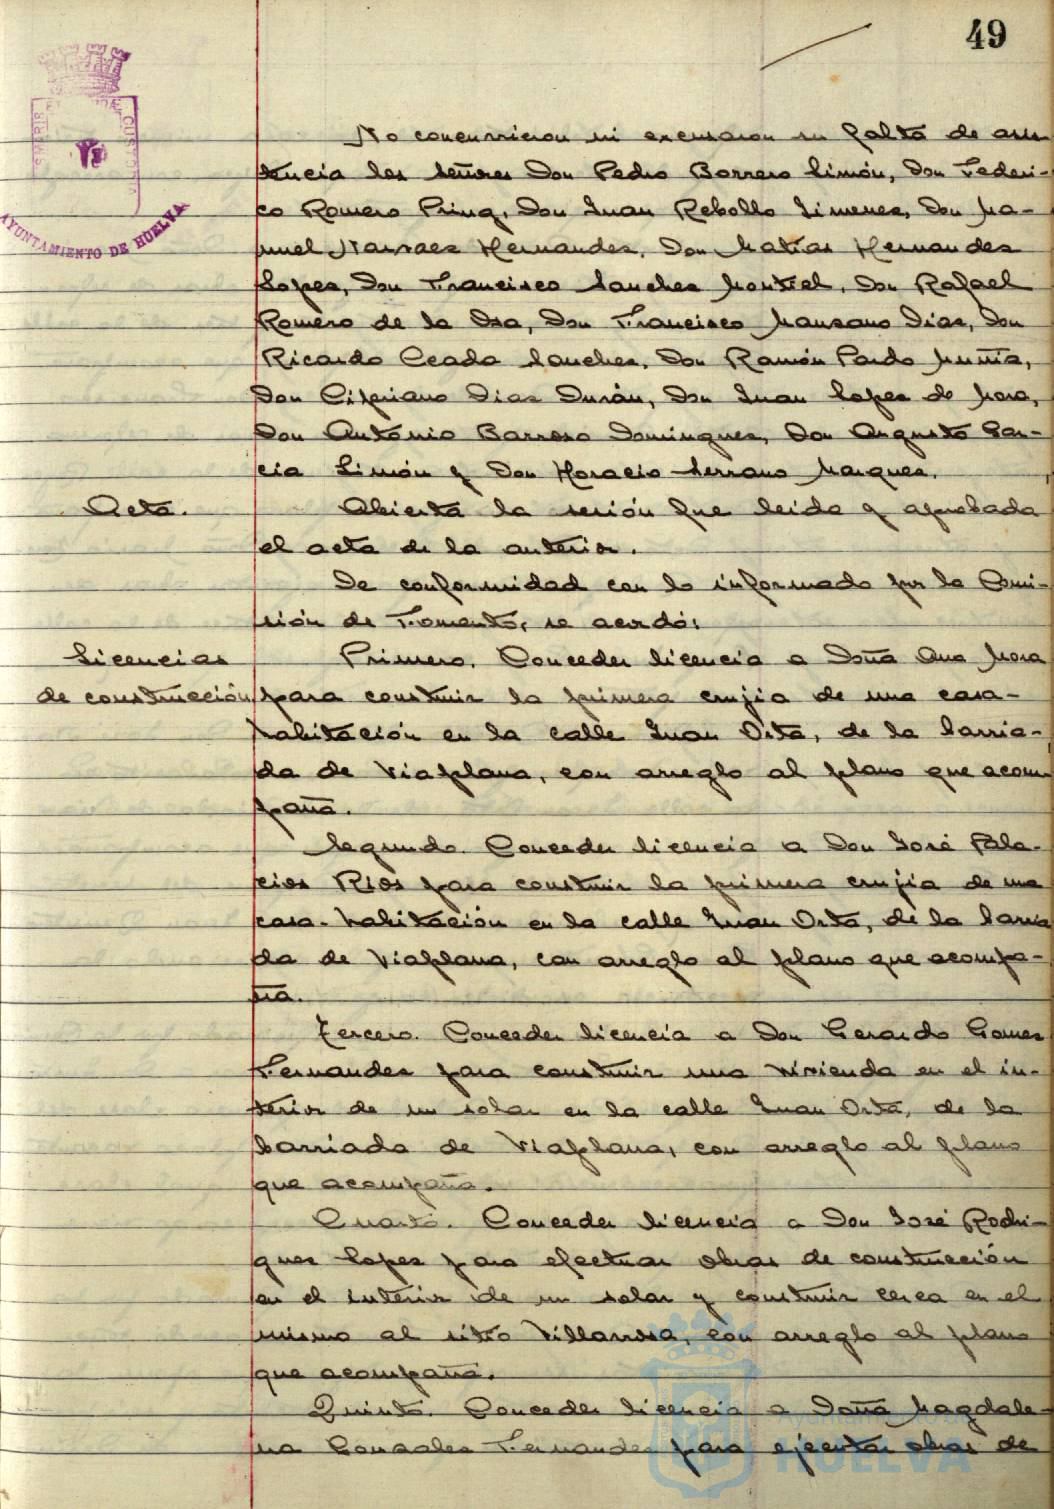 49
AYUNTAMIENTO DE HUELVA
No concurrieron ni excusaron su falta de asis-
tencia los señores Don Pedro Borrero Limón, Don Federi-
co Romero Pring, Don Juan Rebollo Jimenez, Don Ma-
nuel Narvaez Hernandez, Don Matías Hernandez
Lopez, Don Francisco Sanchez Montiel, Don Rafael
Romero de la Osa, Don Francisco Manzano Diaz, Don
Ricardo Ceada Sanchez, Don Ramón Pardo
Don Cipriano Diaz Durán, Don Juan Lopez de Mora,
Don Antonio Barroso Dominguez, Don Augusto Gar-
cia Limón y Don Horacio Serrano Marquez.
Acta.
Abierta la sesión fue leida y aprobada
el acta de la anterior.
De conformidad con lo informado por la Comi-
sión de Fomento, se acordó:
Licencias
de construcción
Primero. Conceder licencia a Doña Ana Mora
para construir la primera crujia de una casa-
habitación en la calle Juan Orta, de la barria-
da de Viaplana, con arreglo al plano que acom-
paña.
Segundo. Conceder licencia a Don José Pala-
cios Rios para construir la primera crujia de una
casa-habitación en la calle Juan Orta, de la barria
da de Viaplana, con arreglo al plano que acompa-
ña.
Tercero. Conceder licencia a Don Gerardo Gomez
Fernandez para construir una vivienda en el in-
terior de un solar en la calle Juan Orta, de la
barriada de Viaplana, con arreglo al plano
que acompaña.
Cuarto. Conceder licencia a Don José Rodri-
guez Lopez para efectuar obras de construcción
en el interior de un solar y construir cerca en el
mismo al sitio Villarrosa, con arreglo al plano
que acompaña.
Quinto. Conceder licencia a Doña Magdale-
na Gonzalez Fernandez para ejecutar obras de
Ayuntamiento de
HUELVA